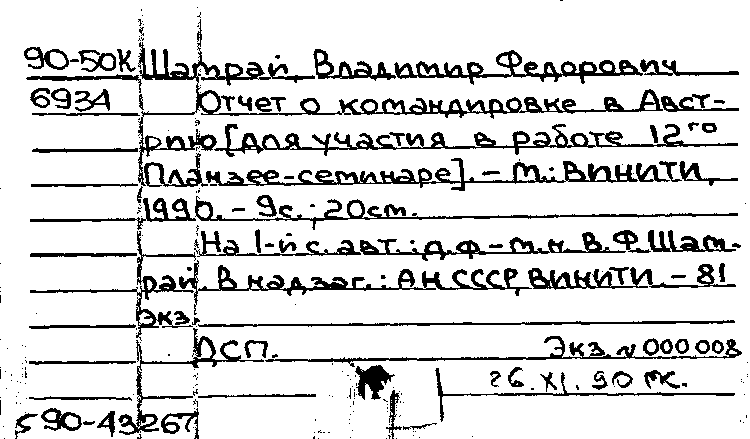 90-50К Шатрай, Владимир Федорович
6934 Отчет о командировке в Авст-
рию [для участия в работе 12го
Планзее-семинаре]. - М.: ВИНИТИ,
1990. - 9с.; 20см.
На 1-й с. авт.: д.ф.-м.н. В.Ф.Шат-
рай. В надзаг.: АН СССР, ВИНИТИ. - 81
экз.
ДСП. Экз. N 000008
26.XI.90 ГК.
590-43267